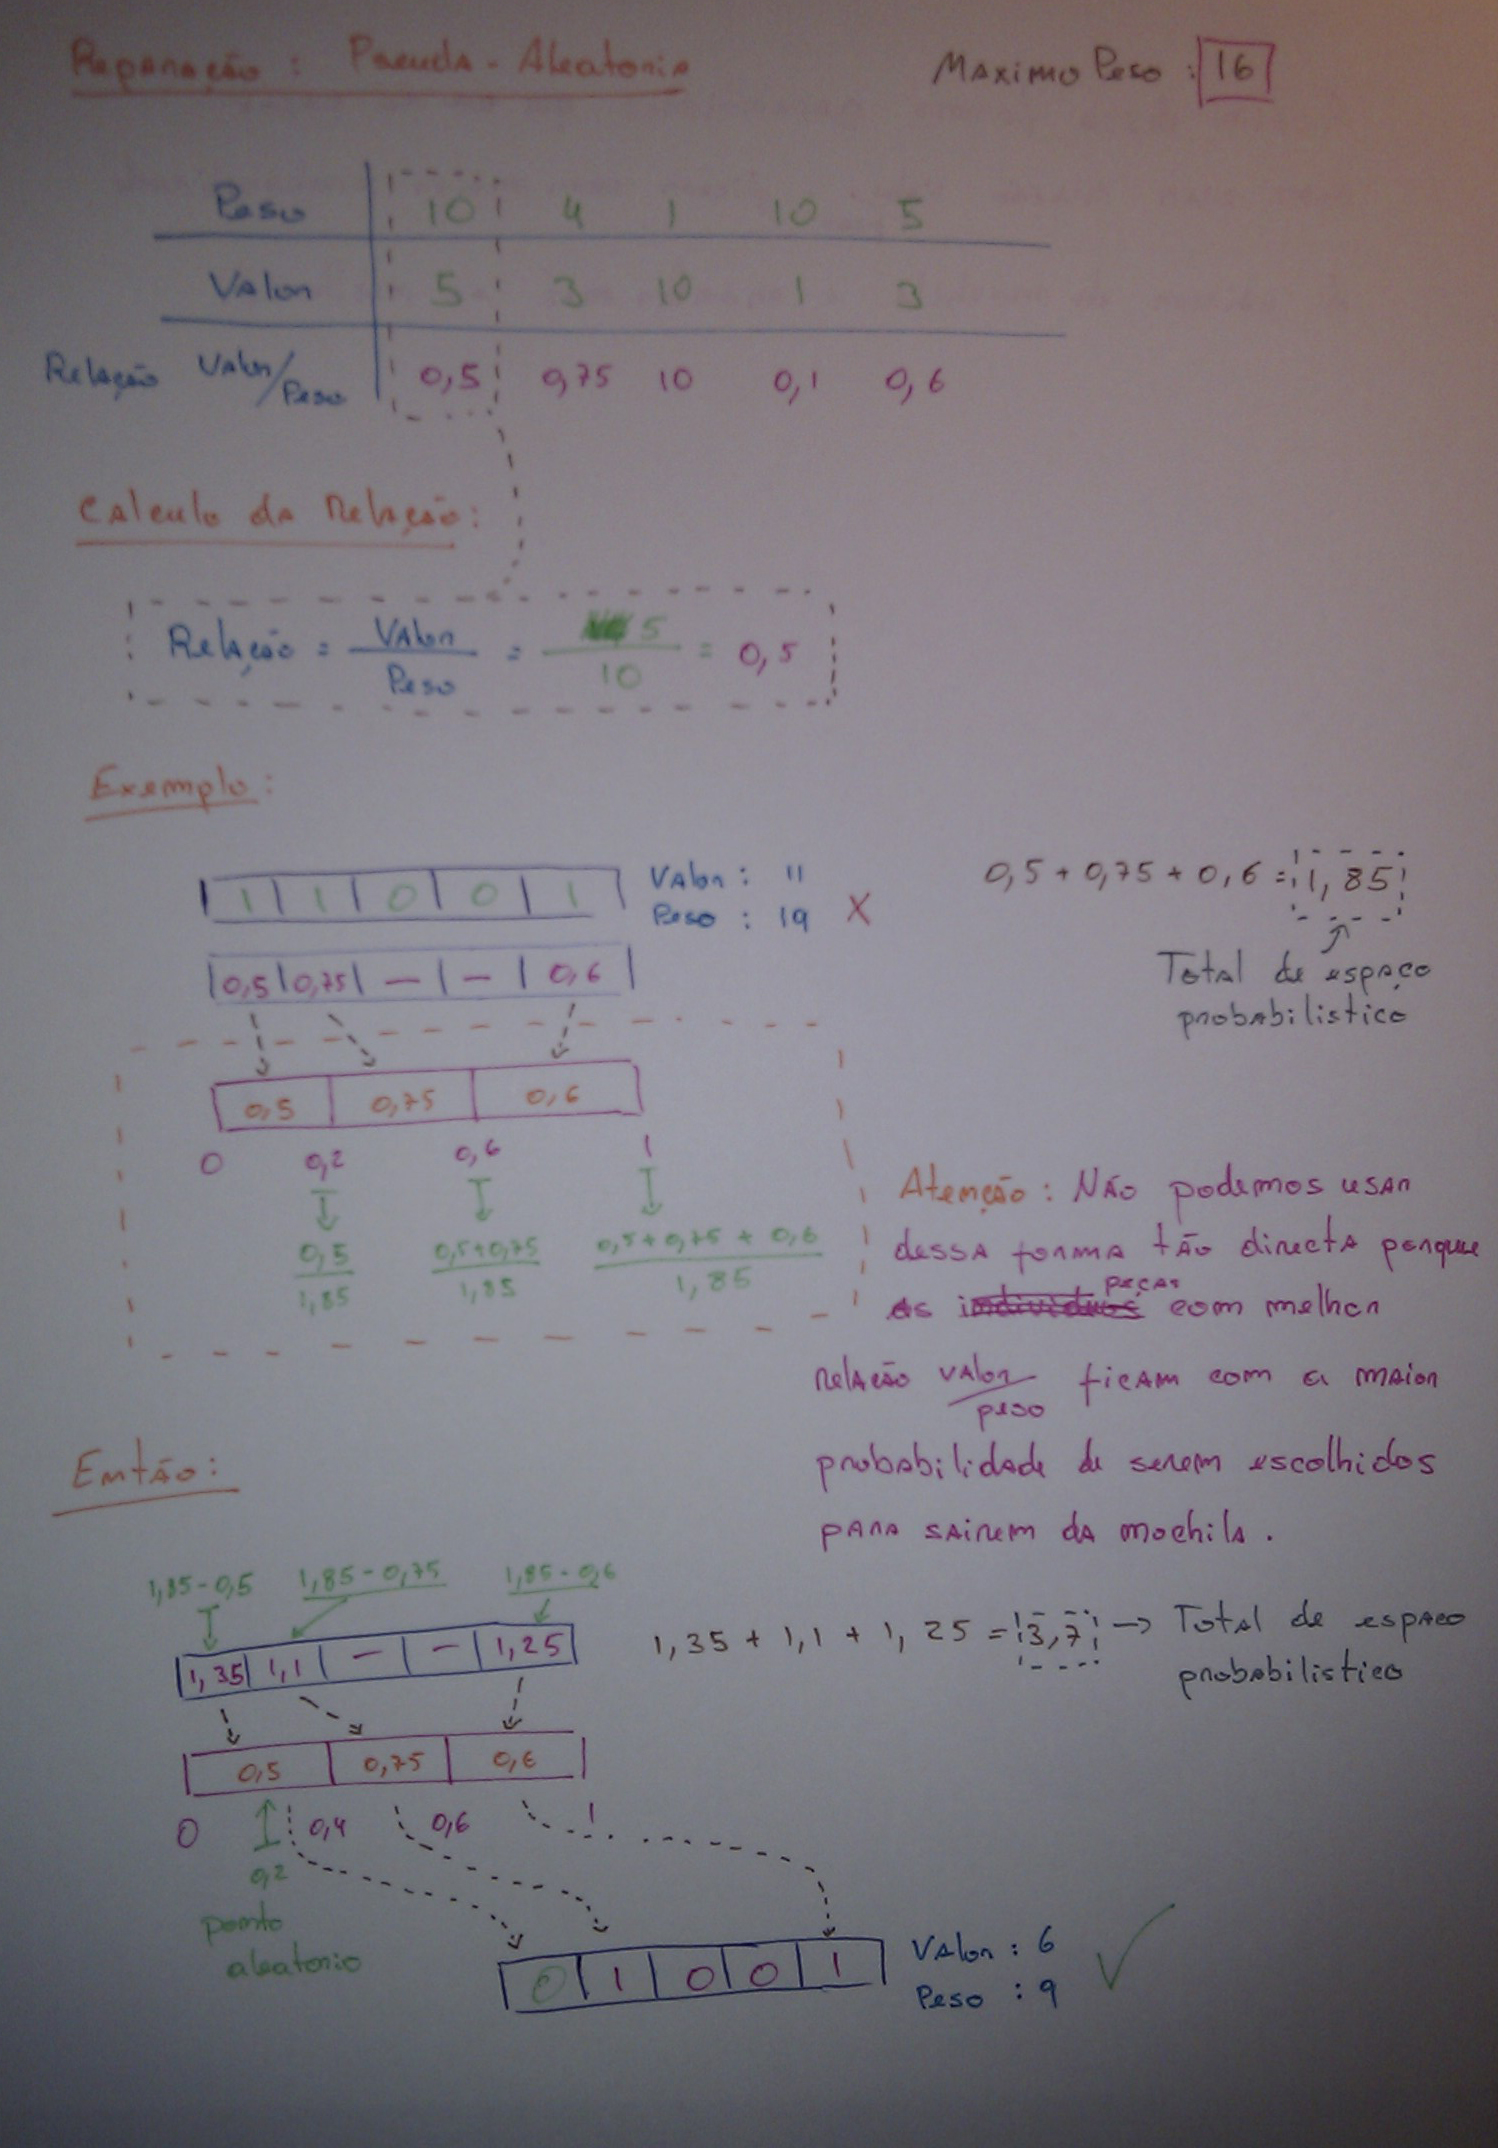 Reparação : Pseudo-Aleatoria
Maximo Peso : 16
Peso 10 4 1 10 5
Valor 5 3 10 1 3
Relação Valor/Peso 0,5 0,75 10 0,1 0,6
Calculo da Relação:
Relação = Valor/Peso = 5/10 = 0,5
Exemplo:
1 1 0 0 1
Valor : 11
Peso : 19 X
0,5 + 0,75 + 0,6 = 1,85
Total de espaço
probabilistico
0,5 0,75 — — 0,6
0,5 0,75 0,6
0 0,2 0,6 1
0,5/1,85 0,5+0,75/1,85 0,5+0,75+0,6/1,85
Atenção : Não podemos usar
dessa forma tão directa porque
as individuos peças com melhor
relação valor/peso ficam com a maior
probabilidade de serem escolhidos
para sairem da mochila.
Então:
1,85-0,5 1,85-0,75 1,85-0,6
1,35 1,1 — — 1,25
1,35 + 1,1 + 1,25 = 3,7 → Total de espaço
probabilistico
0,5 0,75 0,6
0 0,4 0,6 1
0,2
ponto
aleatorio
0 1 0 0 1
Valor : 6
Peso : 9